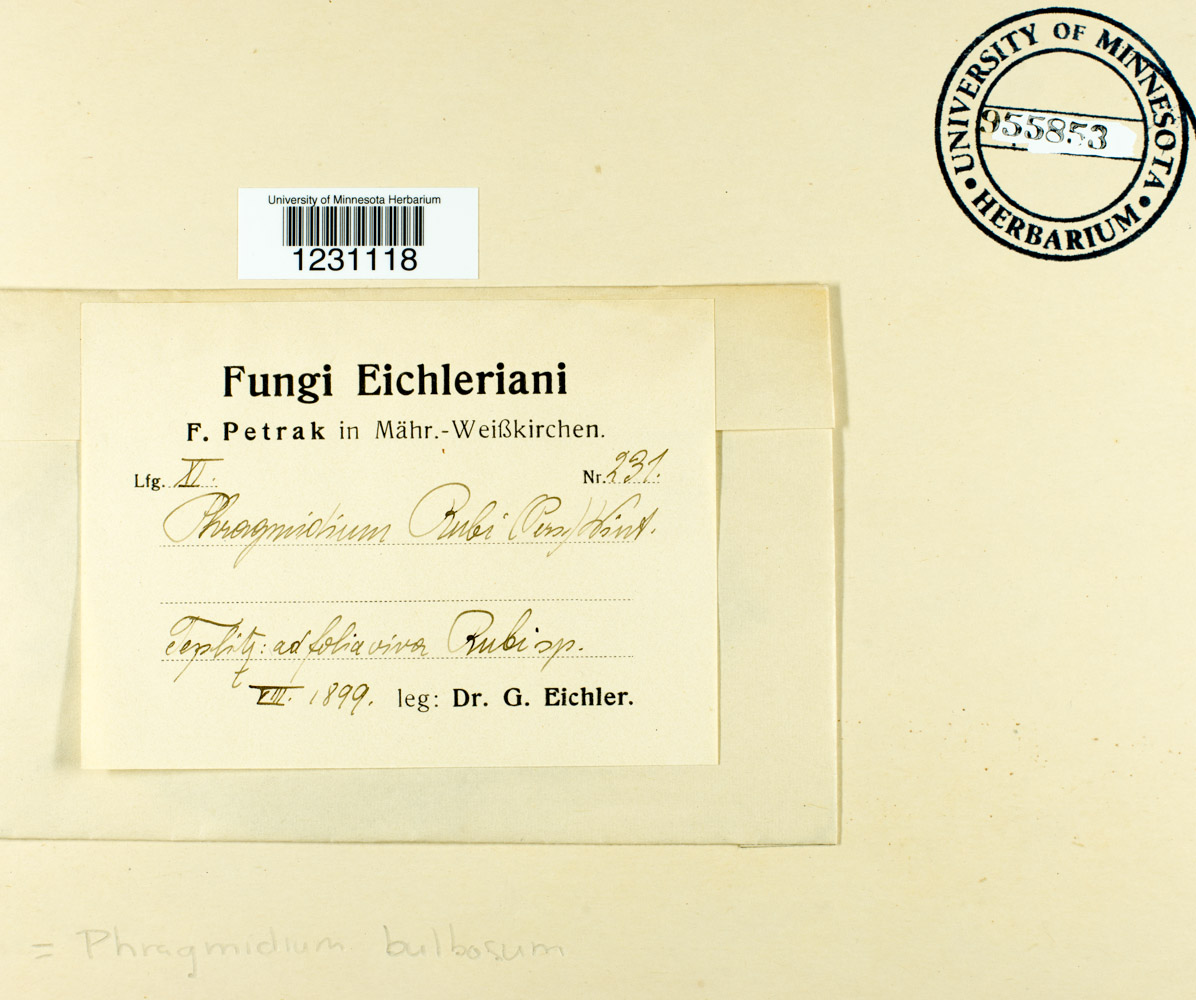 UNIVERSITY OF MINNESOTA
955853
• HERBARIUM •
University of Minnesota Herbarium
1231118
Fungi Eichleriani
F. Petrak in Mähr.-Weißkirchen.
Lfg. XI. Nr. 231.
Phragmidium Rubi (Pers.) Wint.
Teplitz: ad folia viva Rubi sp.
VIII. 1899. leg: Dr. G. Eichler.
= Phragmidium bulbosum